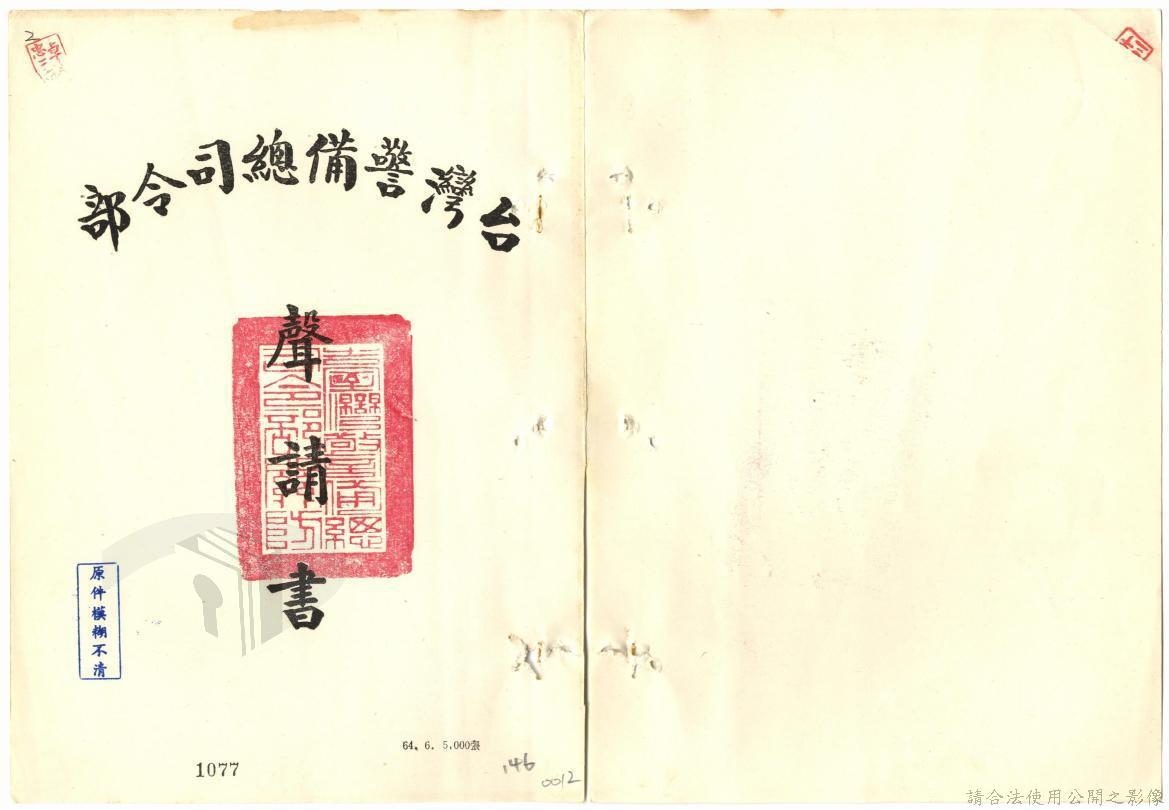 2
台灣警備總司令部
聲請書
原件模糊不清
64. 6. 5,000張
1077
146
0012
請合法使用公開之影像